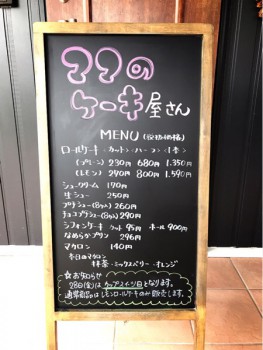 ママの
ケーキ屋さん
MENU (税抜価格)
ロールケーキ カット ハーフ 1本
(プレーン) 230円 680円 1.350円
(レモン) 240円 800円 1.590円
シュークリーム 170円
生シュー 250円
プチシュー(8コ) 260円
チョコプチシュー(8コ) 290円
シフォンケーキ カット 95円 ホール 900円
なめらかプリン 296円
マカロン 140円
本日のマカロン
抹茶・ミックスベリー・オレンジ
☆お知らせ
28日(金)は カップスイーツ日となります。
通常商品はレモンロールケーキのみ販売します。